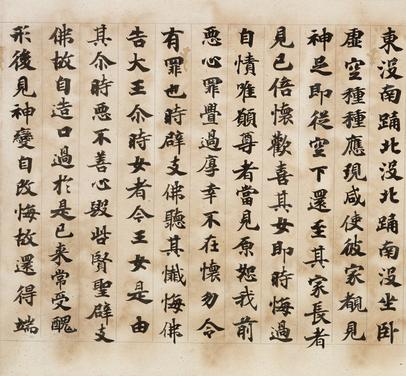 東沒南踊北沒北踊南沒坐卧
虛空種種應現咸使彼家覩見
神足即從空下還至其家長者
見已倍懷歡喜其女即時悔過
自憒唯願尊者當見原恕我前
惡心罪舋過厚幸不在懷勿令
有罪也時辟支佛聽其懺悔佛
告大王尒時女者今王女是由
其尒時惡不善心毀呰賢聖辟支
佛故自造口過於是已来常受醜
形後見神變自改悔故還得端